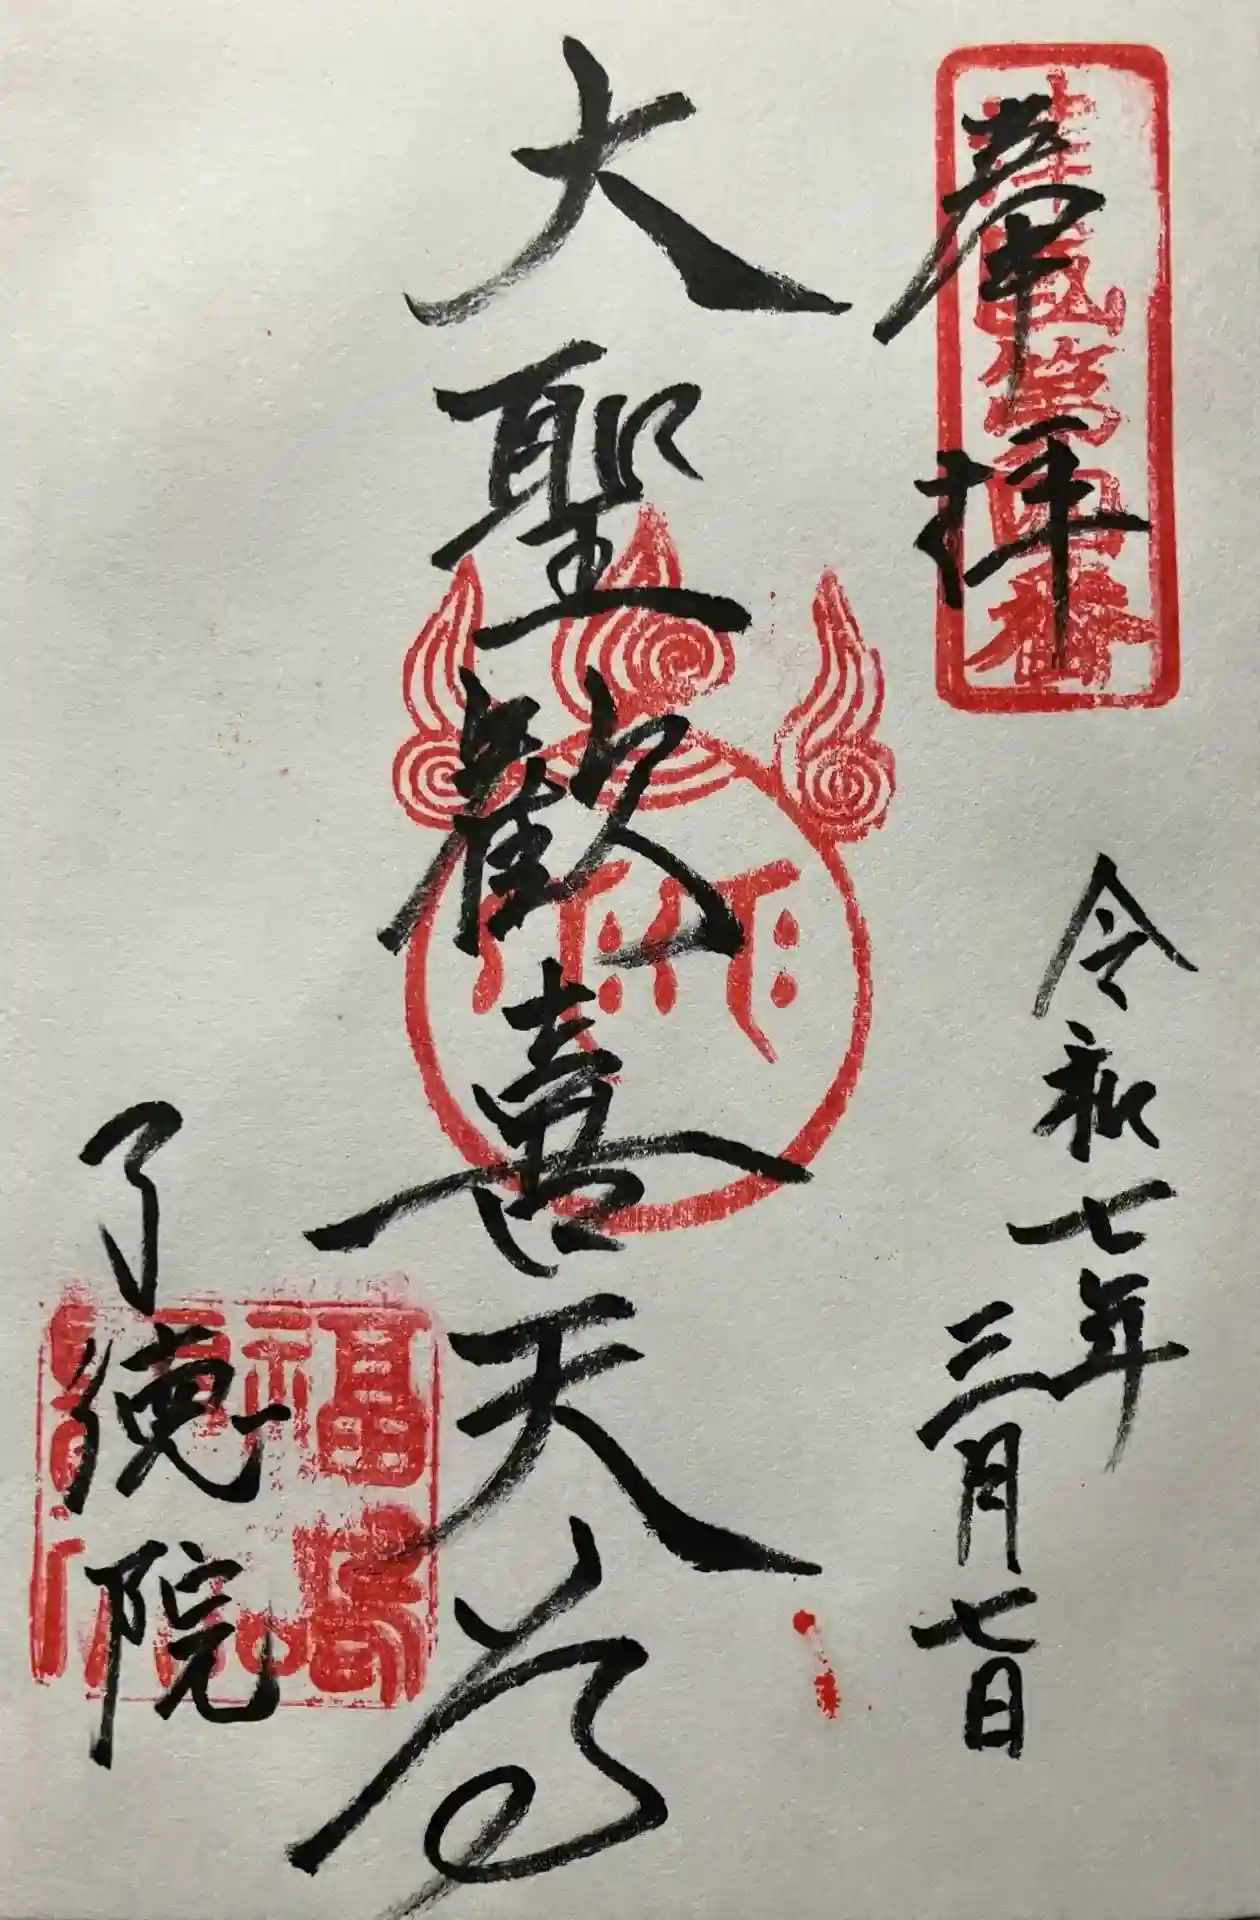 奉拝
第四番
令和七年
三月七日
大聖歓喜天尊
了徳院
福島